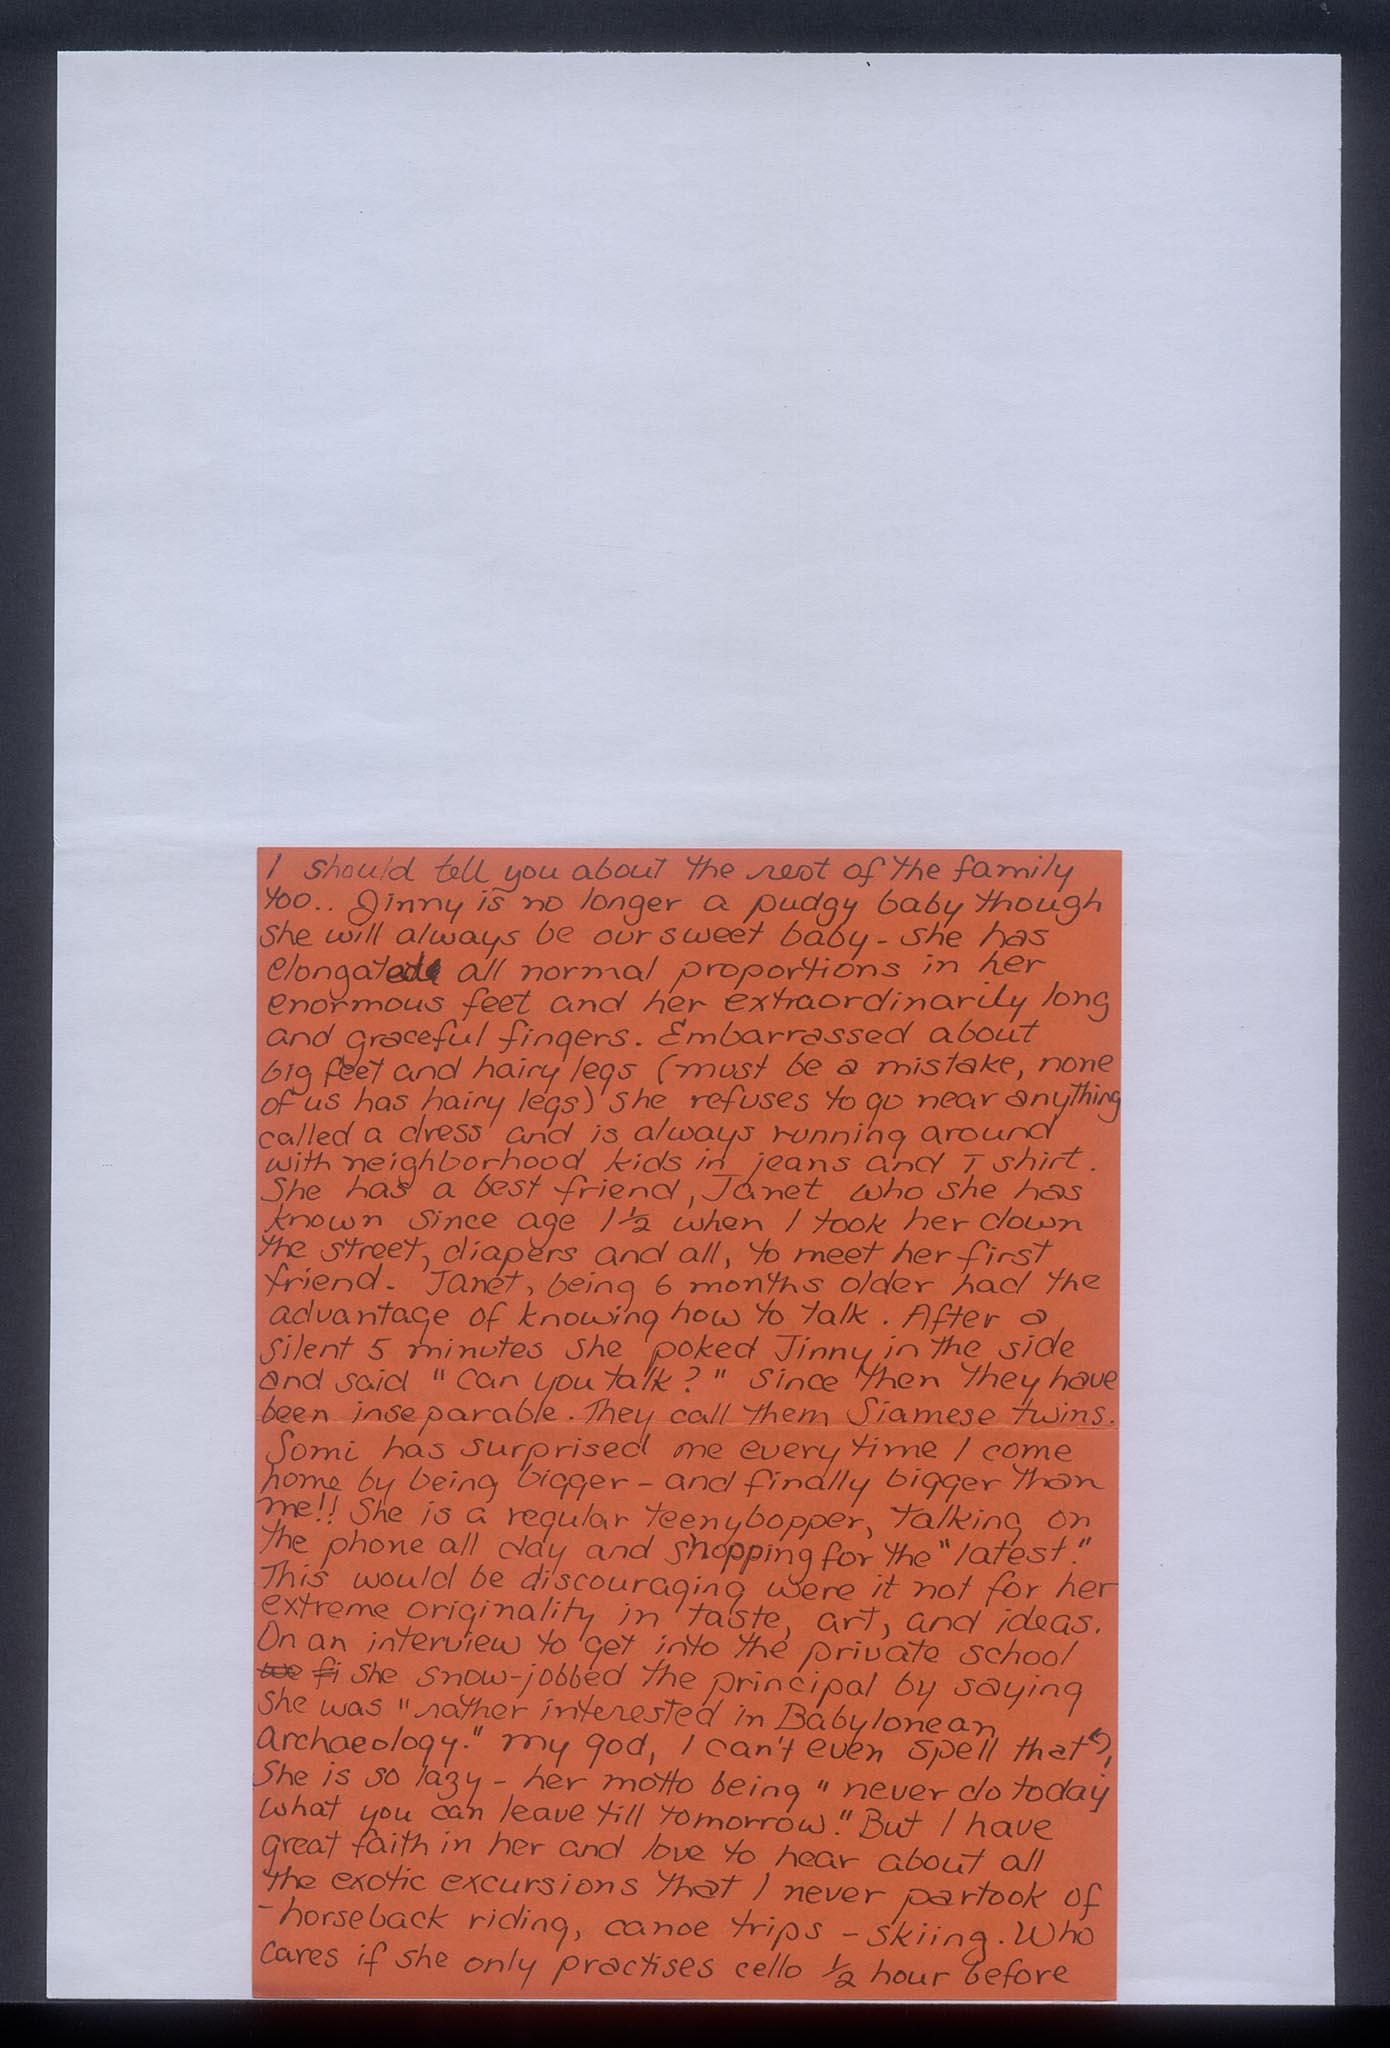 I should tell you about the rest of the family
too.. Jinny is no longer a pudgy baby though
she will always be our sweet baby - she has
elongated all normal proportions in her
enormous feet and her extraordinarily long
and graceful fingers. Embarrassed about
big feet and hairy legs (must be a mistake, none
of us has hairy legs) she refuses to go near anything
called a dress and is always running around
with neighborhood kids in jeans and T shirt.
She has a best friend, Janet who she has
known since age 1½ when I took her down
the street, diapers and all, to meet her first
friend. Janet, being 6 months older had the
advantage of knowing how to talk. After a
silent 5 minutes she poked Jinny in the side
and said "can you talk?" Since then they have
been inseparable. They call them Siamese twins.
Somi has surprised me every time I come
home by being bigger - and finally bigger than
me!! She is a regular teenybopper, talking on
the phone all day and shopping for the "latest."
This would be discouraging were it not for her
extreme originality in taste, art, and ideas.
On an interview to get into the private school
she snow-jobbed the principal by saying
she was "rather interested in Babylonean
Archaeology." My god, I can't even spell that?,
She is so lazy - her motto being "never do today
what you can leave till tomorrow." But I have
great faith in her and love to hear about all
the exotic excursions that I never partook of
- horseback riding, canoe trips - skiing. Who
cares if she only practises cello ½ hour before